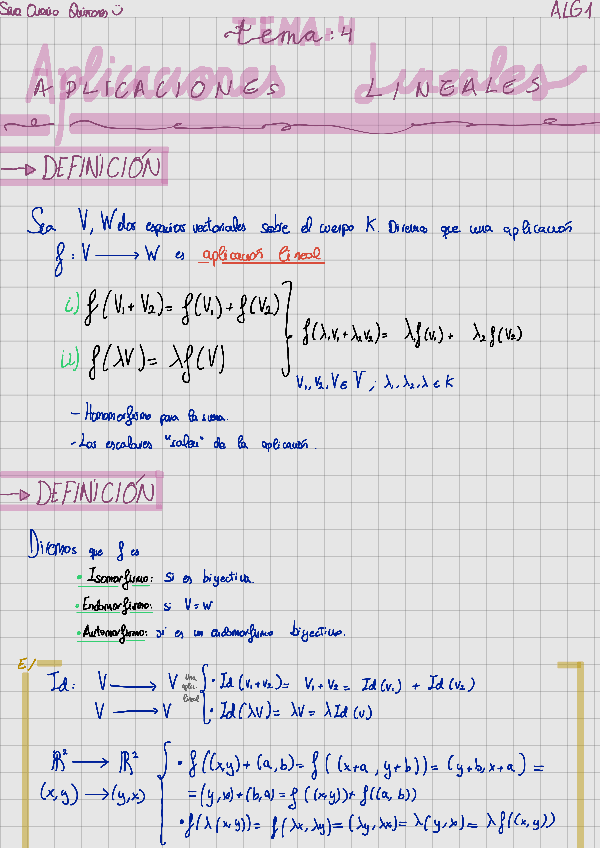 Sara Cuervo Quirones ALG1
TEMA: 4
tema: 4
Aplicaciones Lineales
APLICACIONES LINEALES
→ DEFINICIÓN
Sea V, W dos espacios vectoriales sobre el cuerpo K. Diremos que una aplicación
f: V ⟶ W es aplicación lineal
i) f(V₁ + V₂) = f(V₁) + f(V₂)
f(λ₁V₁ + λ₂V₂) = λ₁f(V₁) + λ₂f(V₂)
ii) f(λV) = λf(V)
V₁, V₂, V ∈ V ; λ₁, λ₂, λ ∈ K
- Homomorfismo para la suma.
- Los escalares "salen" de la aplicación.
→ DEFINICIÓN
Diremos que f es
• Isomorfismo: si es biyectiva.
• Endomorfismo: si V = W
• Automorfismo: si es un endomorfismo biyectivo.
E/
Id: V ⟶ V Una aplic. lineal { • Id(V₁+V₂) = V₁+V₂ = Id(V₁) + Id(V₂)
V ⟶ V • Id(λV) = λV = λId(V)
ℝ² ⟶ ℝ² { • f((x,y) + (a,b) = f((x+a, y+b)) = (y+b, x+a) =
(x,y) ⟶ (y,x) = (y,x) + (b,a) = f((x,y)) + f((a,b))
• f(λ(x,y)) = f(λx, λy) = (λy, λx) = λ(y,x) = λf((x,y))